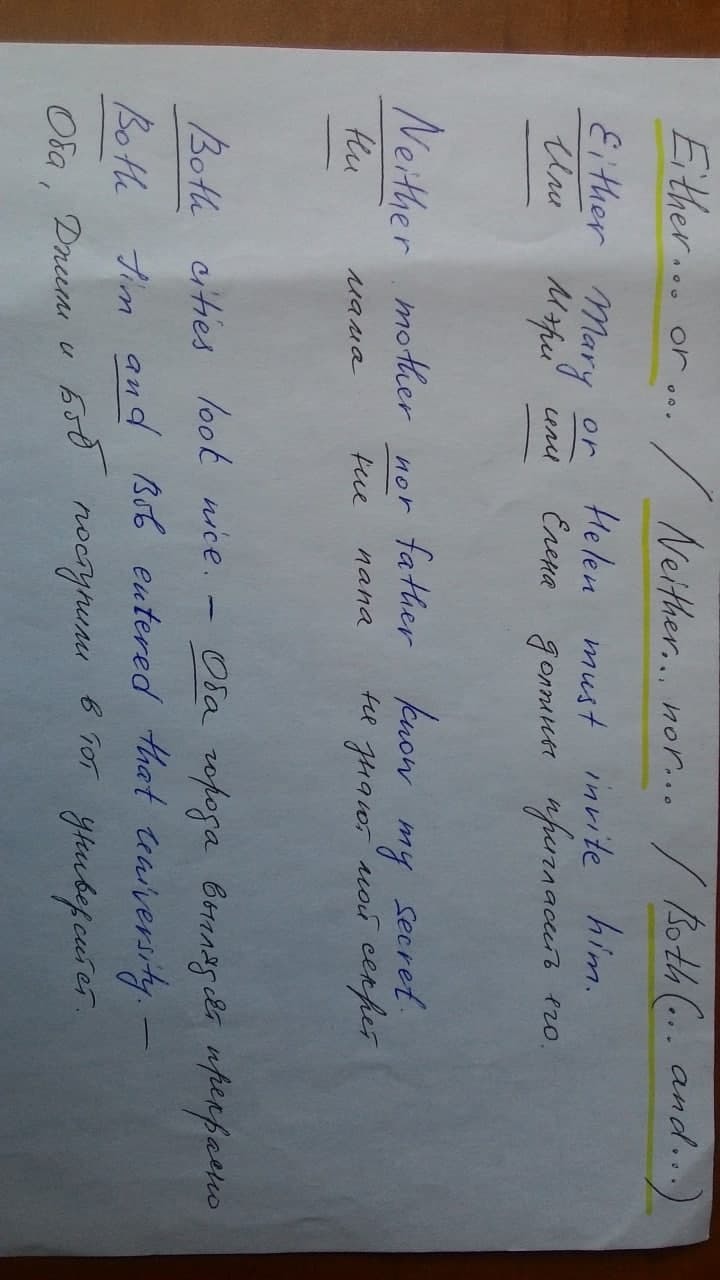 Either... or... / Neither... nor... / Both (... and...)
Either Mary or Helen must invite him.
Или Мэри или Елена должны пригласить его.
Neither mother nor father know my secret.
Ни мама ни папа не знают мой секрет
Both cities look nice. – Оба города выглядят прекрасно
Both Jim and Bob entered that university. –
Оба, Джим и Боб поступили в тот университет.